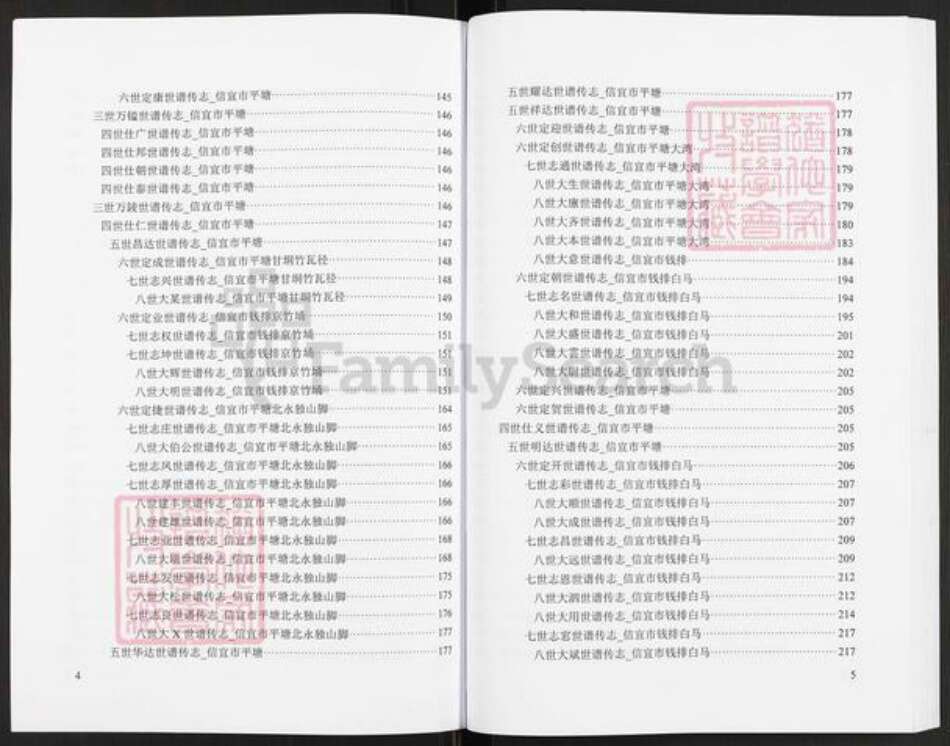 六世定康世谱传志_信宜市平塘 145
三世万镒世谱传志_信宜市平塘 146
四世仕广世谱传志_信宜市平塘 146
四世仕邦世谱传志_信宜市平塘 146
四世仕朝世谱传志_信宜市平塘 146
四世仕泰世谱传志_信宜市平塘 146
三世万 世谱传志_信宜市平塘 146
四世仕仁世谱传志_信宜市平塘 147
五世昌达世谱传志_信宜市平塘 147
六世定成世谱传志_信宜市平塘甘垌竹瓦径 148
七世志兴世谱传志_信宜市平塘甘垌竹瓦径 148
八世大某世谱传志_信宜市平塘甘垌竹瓦径 149
六世定业世谱传志_信宜市钱排京竹埇 150
七世志权世谱传志_信宜市钱排京竹埇 151
七世志坤世谱传志_信宜市钱排京竹埇 151
八世大辉世谱传志_信宜市钱排京竹埇 151
八世大明世谱传志_信宜市钱排京竹埇 151
六世定捷世谱传志_信宜市平塘北永独山脚 164
七世志庄世谱传志_信宜市平塘北永独山脚 165
八世大伯公世谱传志_信宜市平塘北永独山脚 165
七世志风世谱传志_信宜市平塘北永独山脚 166
七世志厚世谱传志_信宜市平塘北永独山脚 166
八世建丰世谱传志_信宜市平塘北永独山脚 166
八世建雄世谱传志_信宜市平塘北永独山脚 166
七世志业世谱传志_信宜市平塘北永独山脚 168
八世大 世谱传志_信宜市平塘北永独山脚 168
七世志发世谱传志_信宜市平塘北永独山脚 175
八世大松世谱传志_信宜市平塘北永独山脚 175
七世志良世谱传志_信宜市平塘北永独山脚 176
八世大 X 世谱传志_信宜市平塘北永独山脚 177
五世华达世谱传志_信宜市平塘 177
4
五世耀达世谱传志_信宜市平塘 177
五世祥达世谱传志_信宜市平塘 177
六世定迎世谱传志_信宜市平塘 178
六世定创世谱传志_信宜市平塘大湾 178
七世志通世谱传志_信宜市平塘大湾 179
八世大生世谱传志_信宜市平塘大湾 179
八世大康世谱传志_信宜市平塘大湾 179
八世大齐世谱传志_信宜市平塘大湾 180
八世大本世谱传志_信宜市平塘大湾 183
八世大意世谱传志_信宜市钱排 184
六世定朝世谱传志_信宜市钱排白马 194
七世志名世谱传志_信宜市钱排白马 194
八世大和世谱传志_信宜市钱排白马 195
八世大盛世谱传志_信宜市钱排白马 201
八世大雲世谱传志_信宜市钱排白马 202
八世大尉世谱传志_信宜市钱排白马 202
六世定兴世谱传志_信宜市平塘 205
六世定贺世谱传志_信宜市平塘 205
四世仕义世谱传志_信宜市平塘 205
五世明达世谱传志_信宜市平塘 205
六世定开世谱传志_信宜市钱排白马 206
七世志彩世谱传志_信宜市钱排白马 207
八世大顺世谱传志_信宜市钱排白马 207
八世大成世谱传志_信宜市钱排白马 207
七世志昌世谱传志_信宜市钱排白马 209
八世大远世谱传志_信宜市钱排白马 209
七世志恩世谱传志_信宜市钱排白马 212
八世大泗世谱传志_信宜市钱排白马 212
八世大用世谱传志_信宜市钱排白马 214
七世志宏世谱传志_信宜市钱排白马 217
八世大斌世谱传志_信宜市钱排白马 217
5
FamilySearch